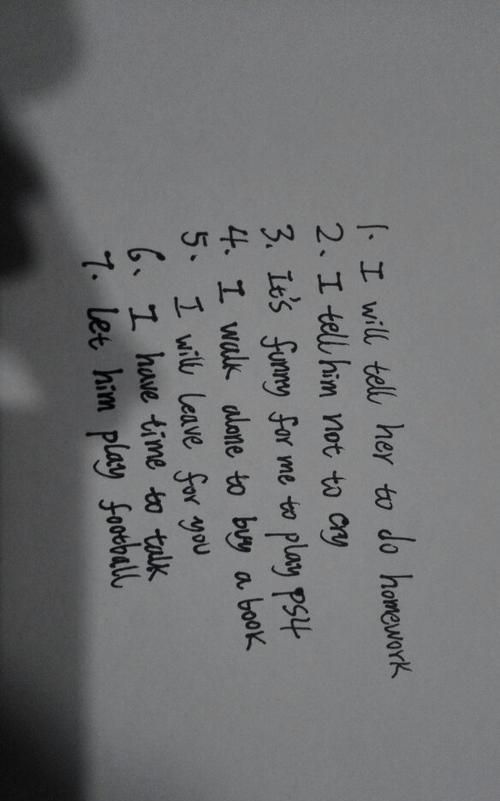 1. I will tell her to do homework
2. I tell him not to cry
3. It's funny for me to play PS4
4. I walk alone to buy a book
5. I will leave for you
6. I have time to talk
7. Let him play football